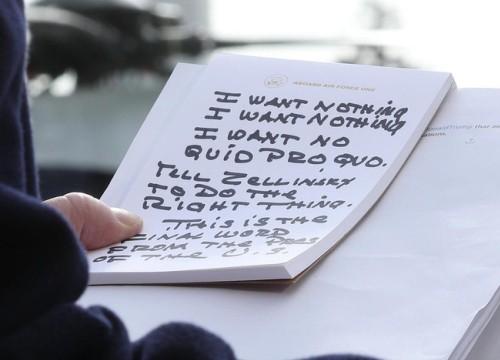 ABOARD AIR FORCE ONE
I WANT NOTHING
I WANT NOTHING
I WANT NO
QUID PRO QUO.
TELL ZELLINSKY
TO DO THE
RIGHT THING.
THIS IS THE
FINAL WORD
FROM THE PRES
OF THE U.S.
Trump that